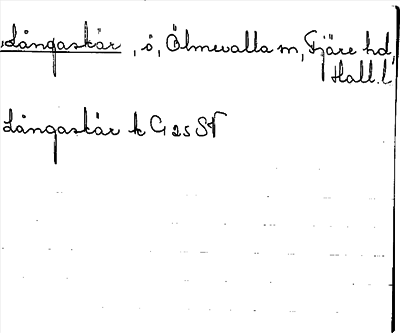 Långaskär, ö, Ölmevalla sn, Fjäre hd,
Hall. l.
Långaskär k G 25 SV